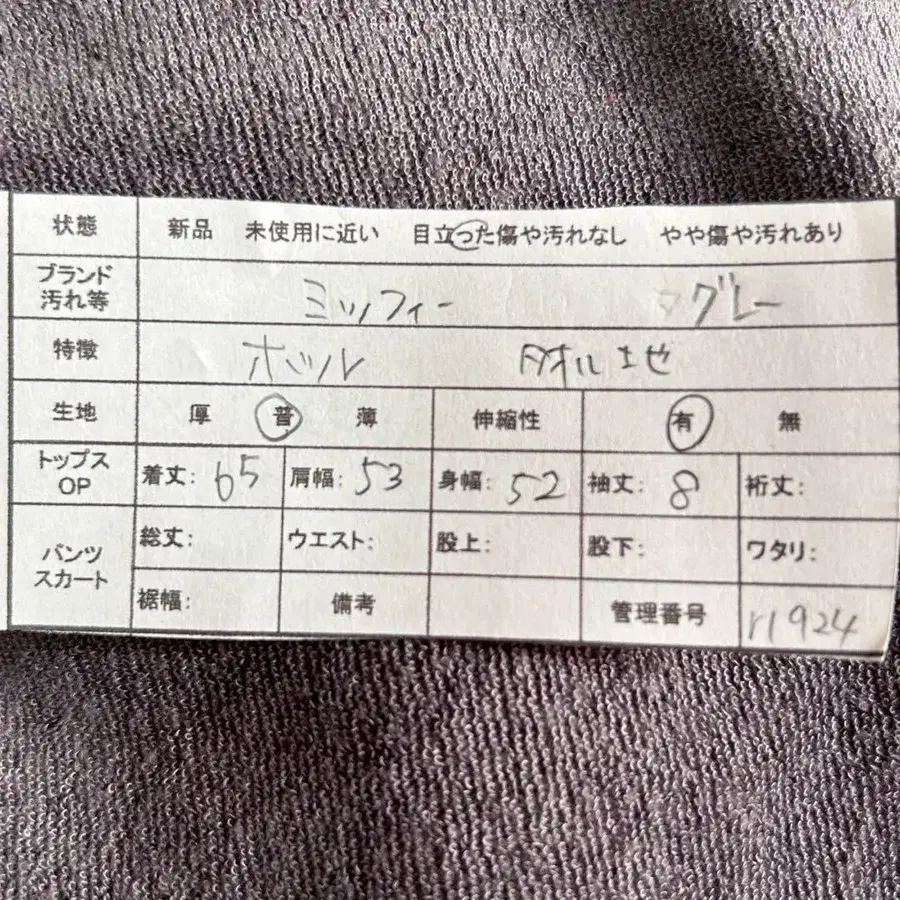 状態 新品 未使用に近い 目立った傷や汚れなし やや傷や汚れあり
ブランド 汚れ等 ミッフィー グレー
特徴 ホツル タオル地
生地 厚 普 薄 伸縮性 有 無
トップス OP 着丈: 65 肩幅: 53 身幅: 52 袖丈: 8 裄丈:
パンツ スカート 総丈: ウエスト: 股上: 股下: ワタリ:
裾幅: 備考 管理番号 r1924